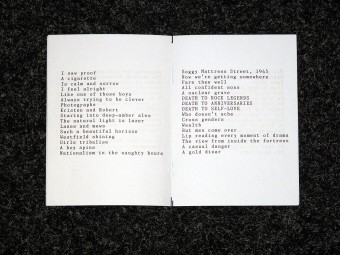 I saw proof
A cigarette
To calm and sorrow
I feel alright
Like one of those boys
Always trying to be clever
Photographs
Kristen and Robert
Staring into deep-amber also
The natural light is laser
Lanes and mews
Such a beautiful horizon
Westfield shining
Girls tribalism
A boy spins
Nationalism in the naughty hours
Soggy Mattress Street, 1965
Now we're getting somewhere
Fare thee well
All confident sons
A nuclear grave
DEATH TO ROCK LEGENDS
DEATH TO ANNIVERSARIES
DEATH TO SELF-LOVE
Who doesn't ache
Cross genders
Wealth
But men come over
Lip reading every moment of drama
The view from inside the fortress
A casual danger
A gold dinar